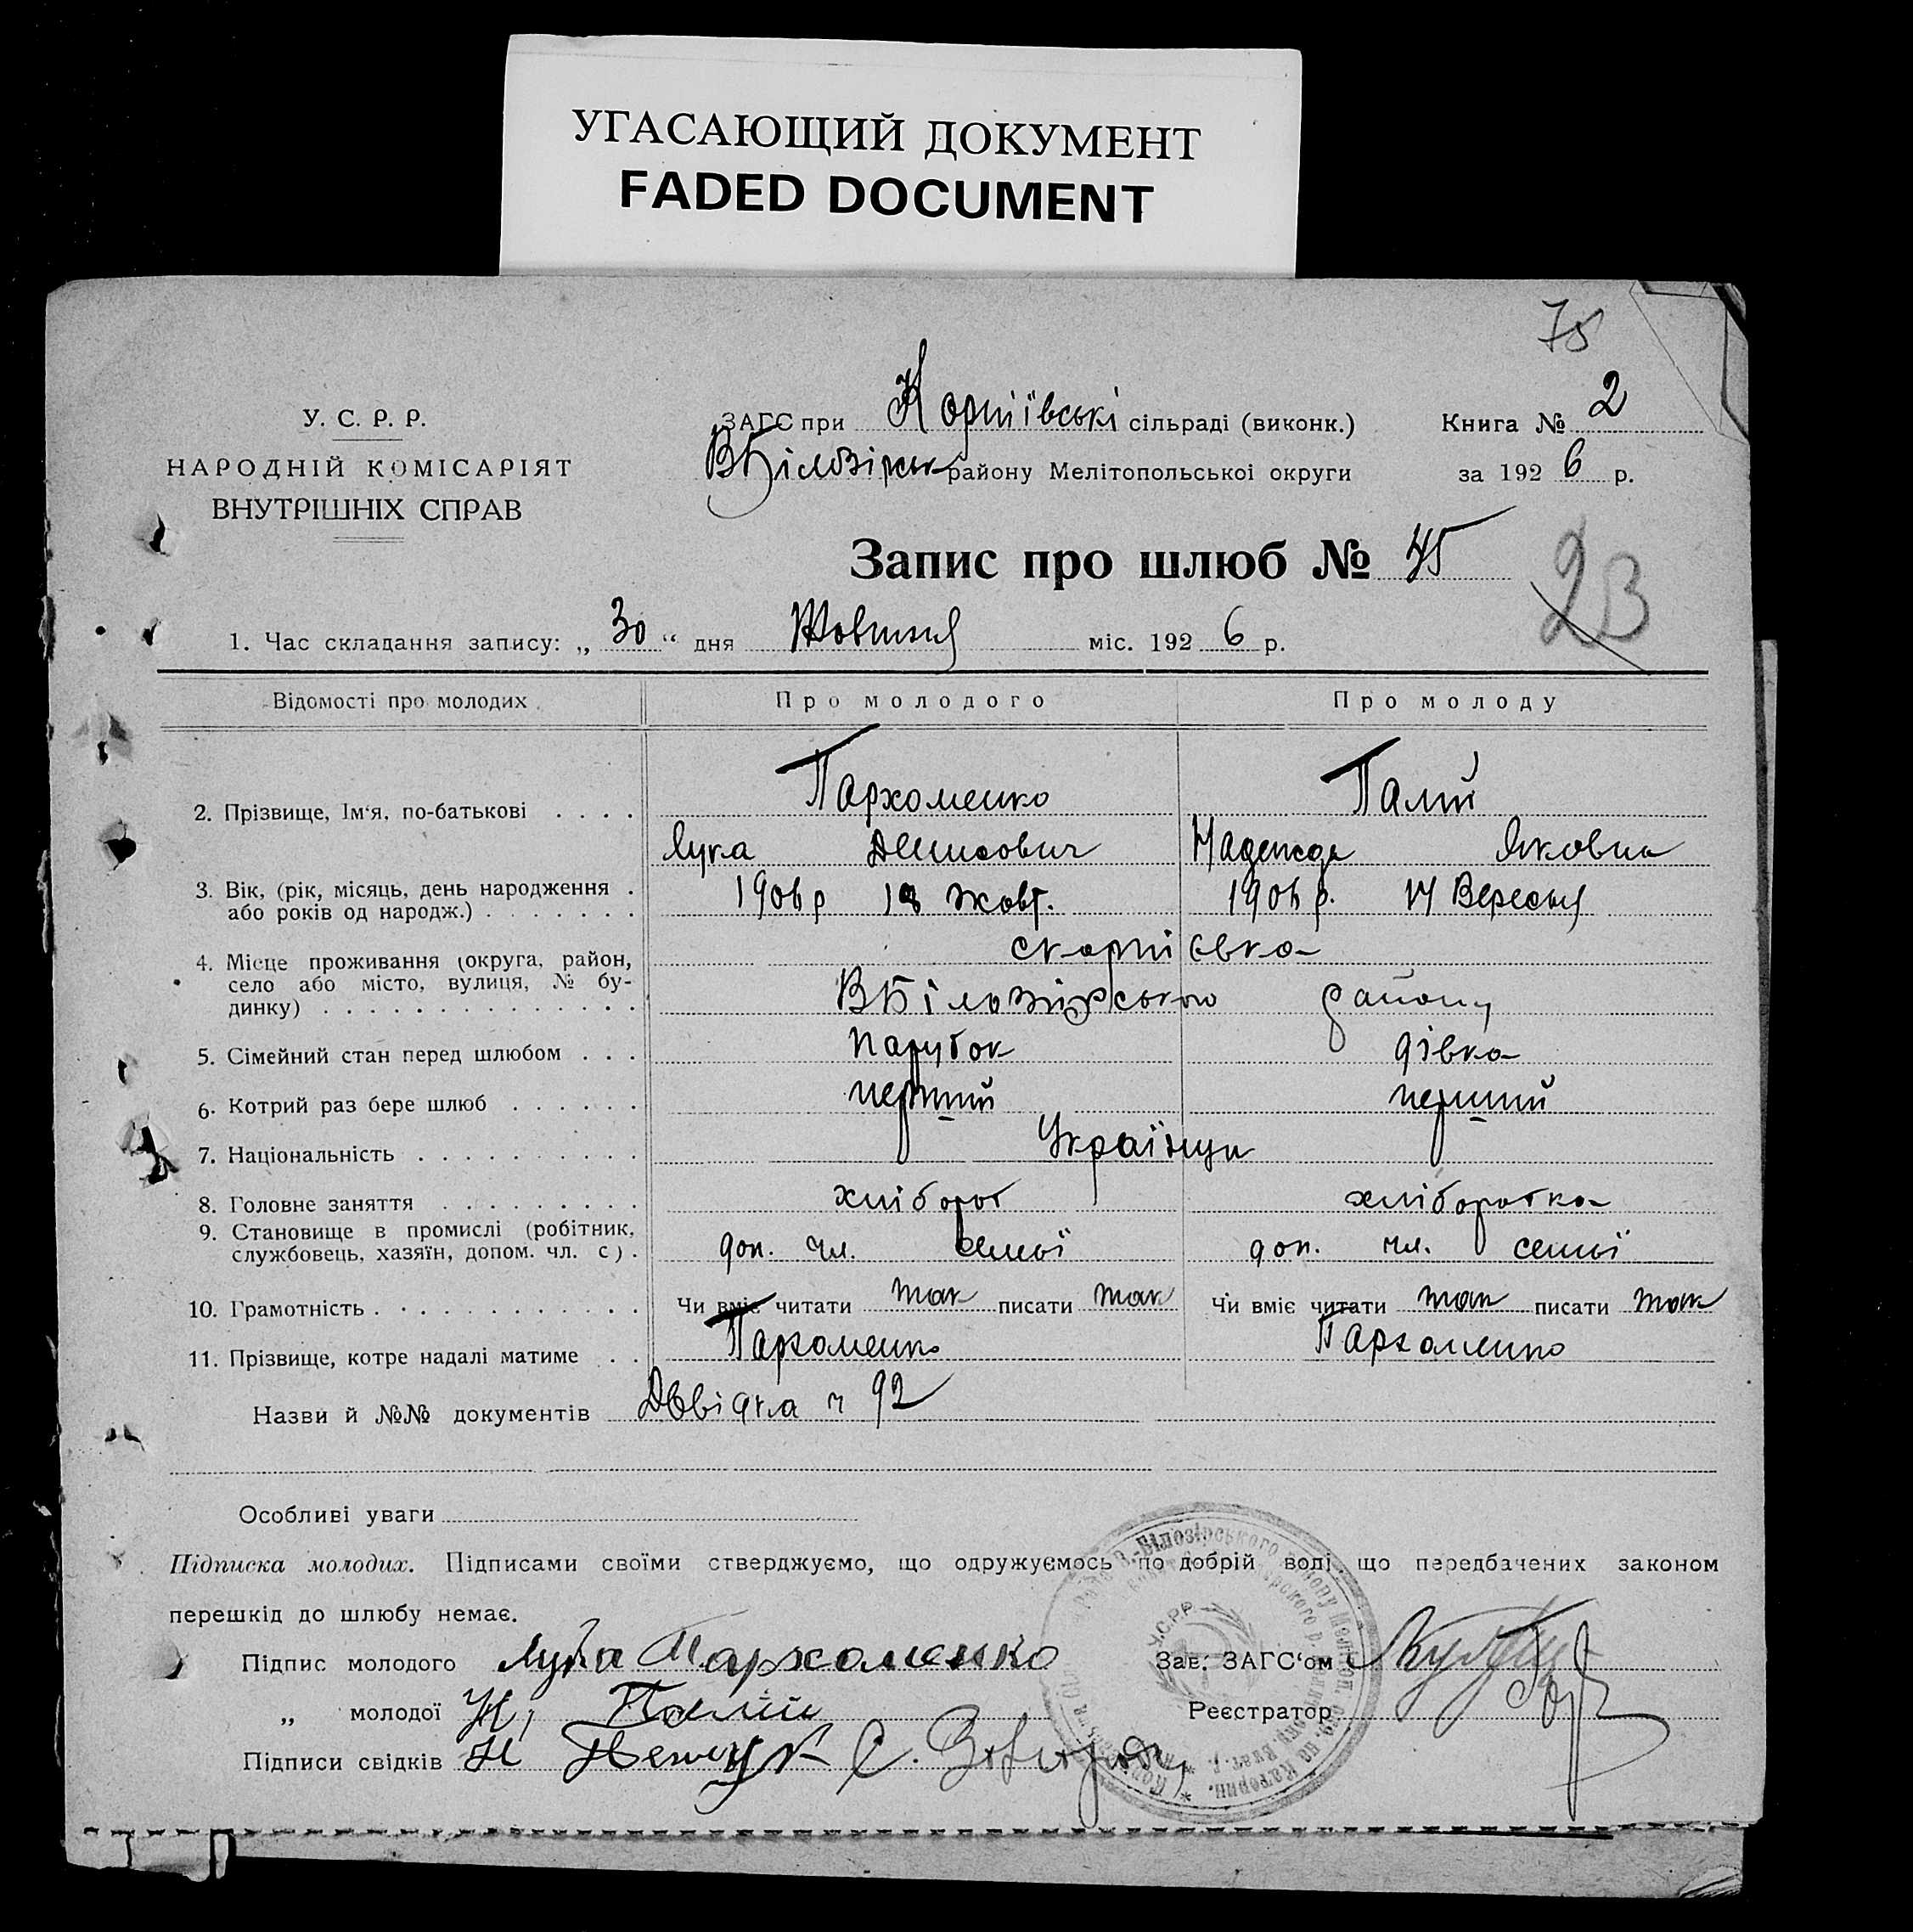 УГАСАЮЩИЙ ДОКУМЕНТ
FADED DOCUMENT
75
У. С. Р. Р.
НАРОДНІЙ КОМІСАРІЯТ
ВНУТРІШНІХ СПРАВ
ЗАГС при Корніївські сільраді (виконк.)
ВБілозірськ району Мелітопольської округи
Книга № 2
за 1926 р.
Запис про шлюб № 45
23
1. Час складання запису: „30“ дня Жовтня міс. 1926 р.
Відомості про молодих Про молодого Про молоду
2. Прізвище, Ім‘я, по-батькові . . . . Пархоменко Палій
Лука Денисович Надежда Яковна
3. Вік, (рік, місяць, день народження . або років од народж.) . . . . . . . 1906 р 18 жовт. 1906 р. 17 Вересня
4. Місце проживання (округа, район, село або місто, вулиця, № будинку) . . . . . . . . . . . . . . с Корнієвка
ВБілозірського району
5. Сімейний стан перед шлюбом . . . парубок дівка
6. Котрий раз бере шлюб . . . . . . перший перший
7. Національність . . . . . . . . . . Українци
8. Головне заняття . . . . . . . . . хлібороб хліборобка
9. Становище в промислі (робітник, службовець, хазяїн, допом. чл. с) . доп. чл. семьї доп. чл. семьї
10. Грамотність . . . . . . . . . . . . Чи вміє читати так писати так Чи вміє читати так писати так
11. Прізвище, котре надалі матиме . . Пархоменко Пархоменко
Назви й №№ документів Довідка ч 92
Особливі уваги
Підписка молодих. Підписами своїми стверджуємо, що одружуємось по добрій волі, що передбачених законом
перешкід до шлюбу немає.
Підпис молодого Лука Пархоменко Зав. ЗАГС‘ом
„ молодої Н, Палій Реєстратор
Підписи свідків Н
У.С.Р.Р.